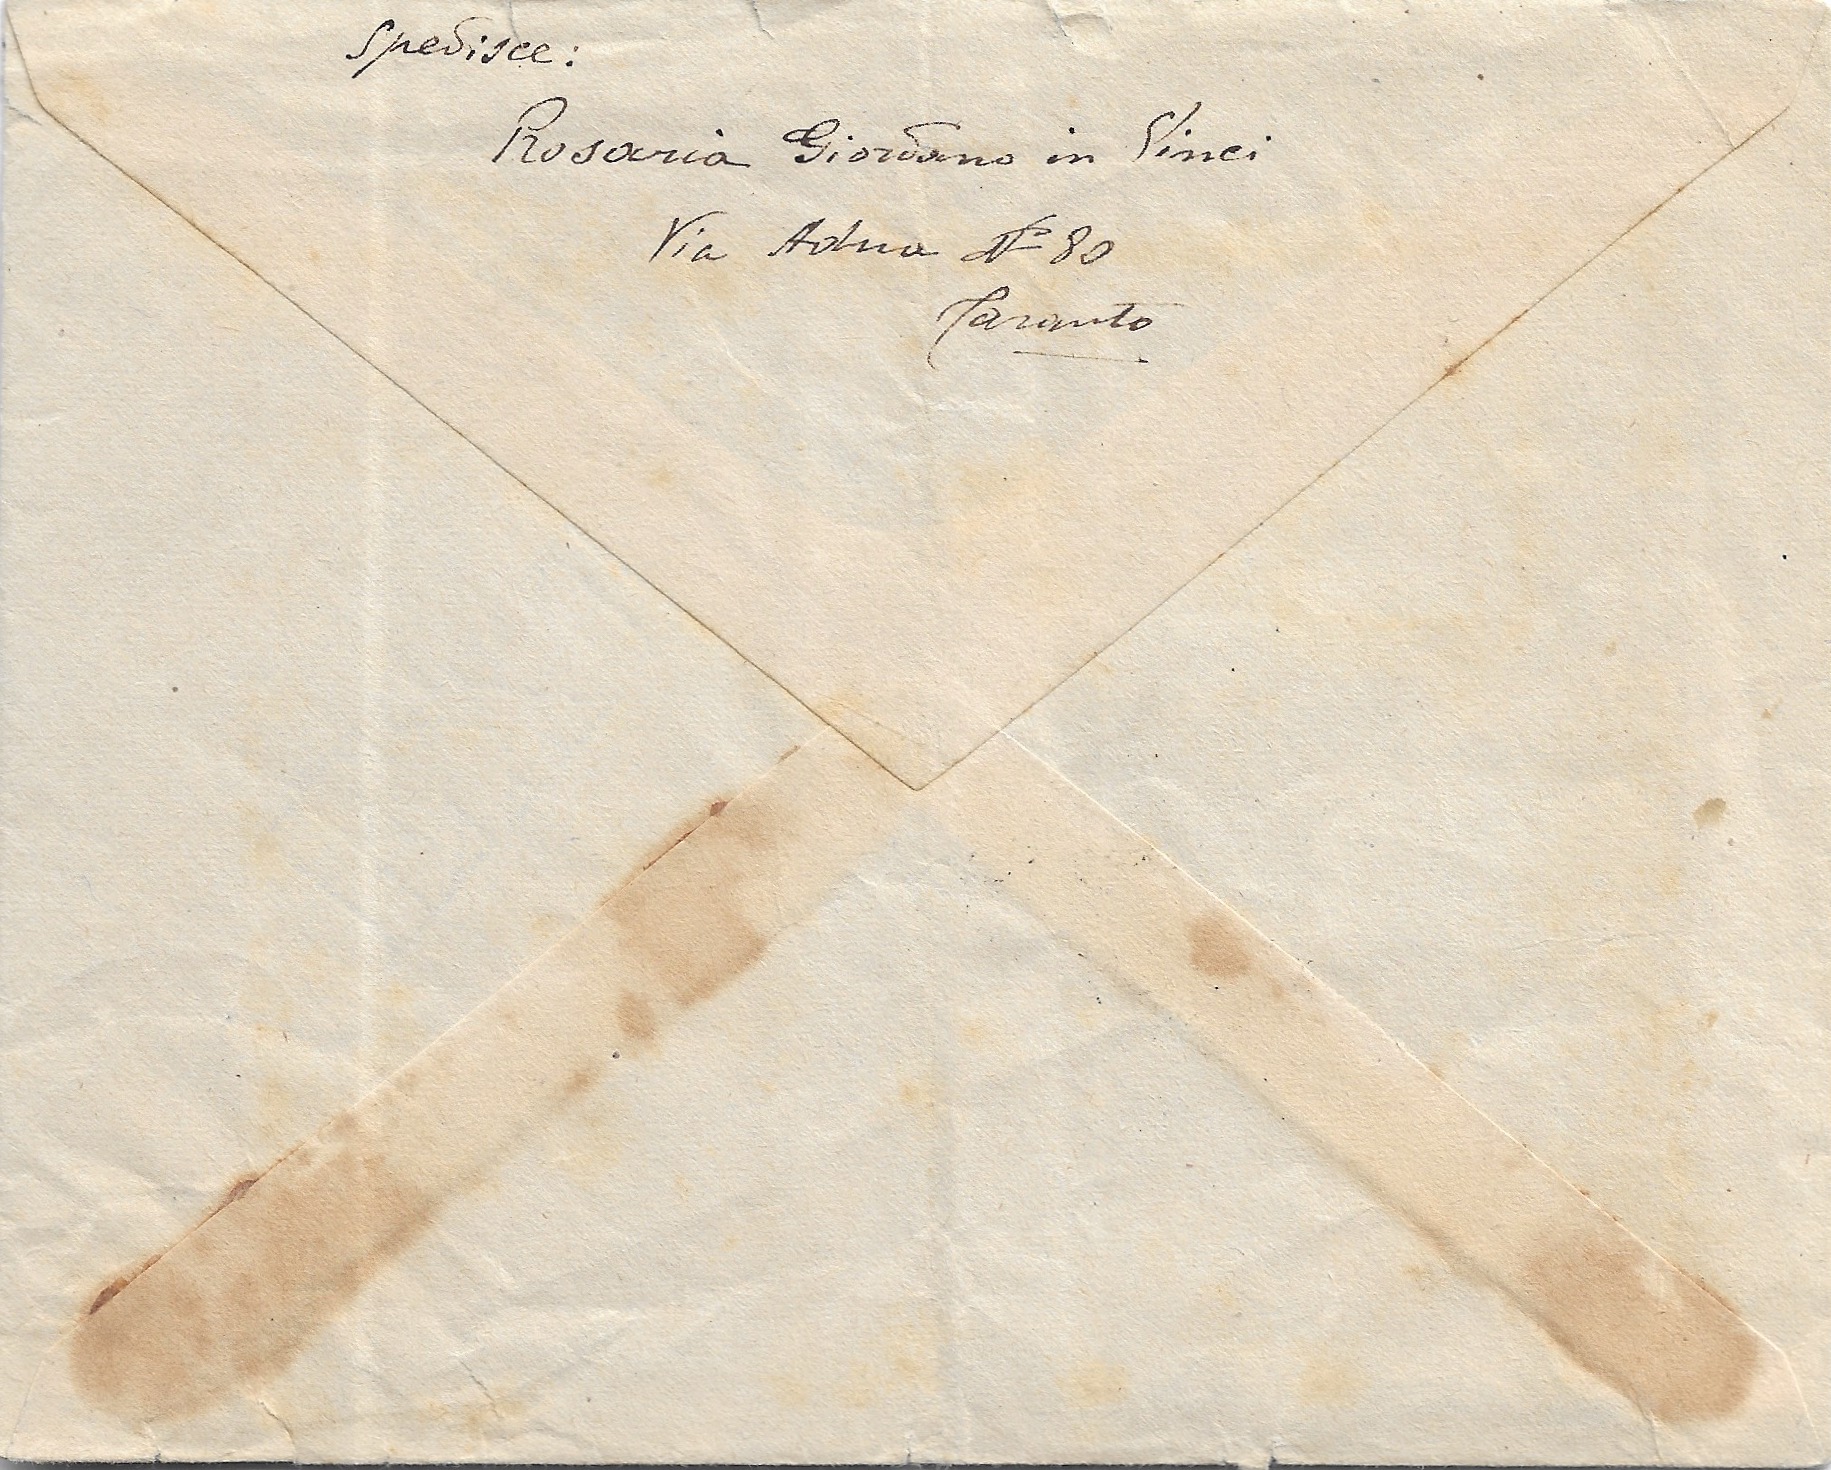 Spedisce:
Rosaria Giordano in Vinci
Via Adua N° 80
Taranto